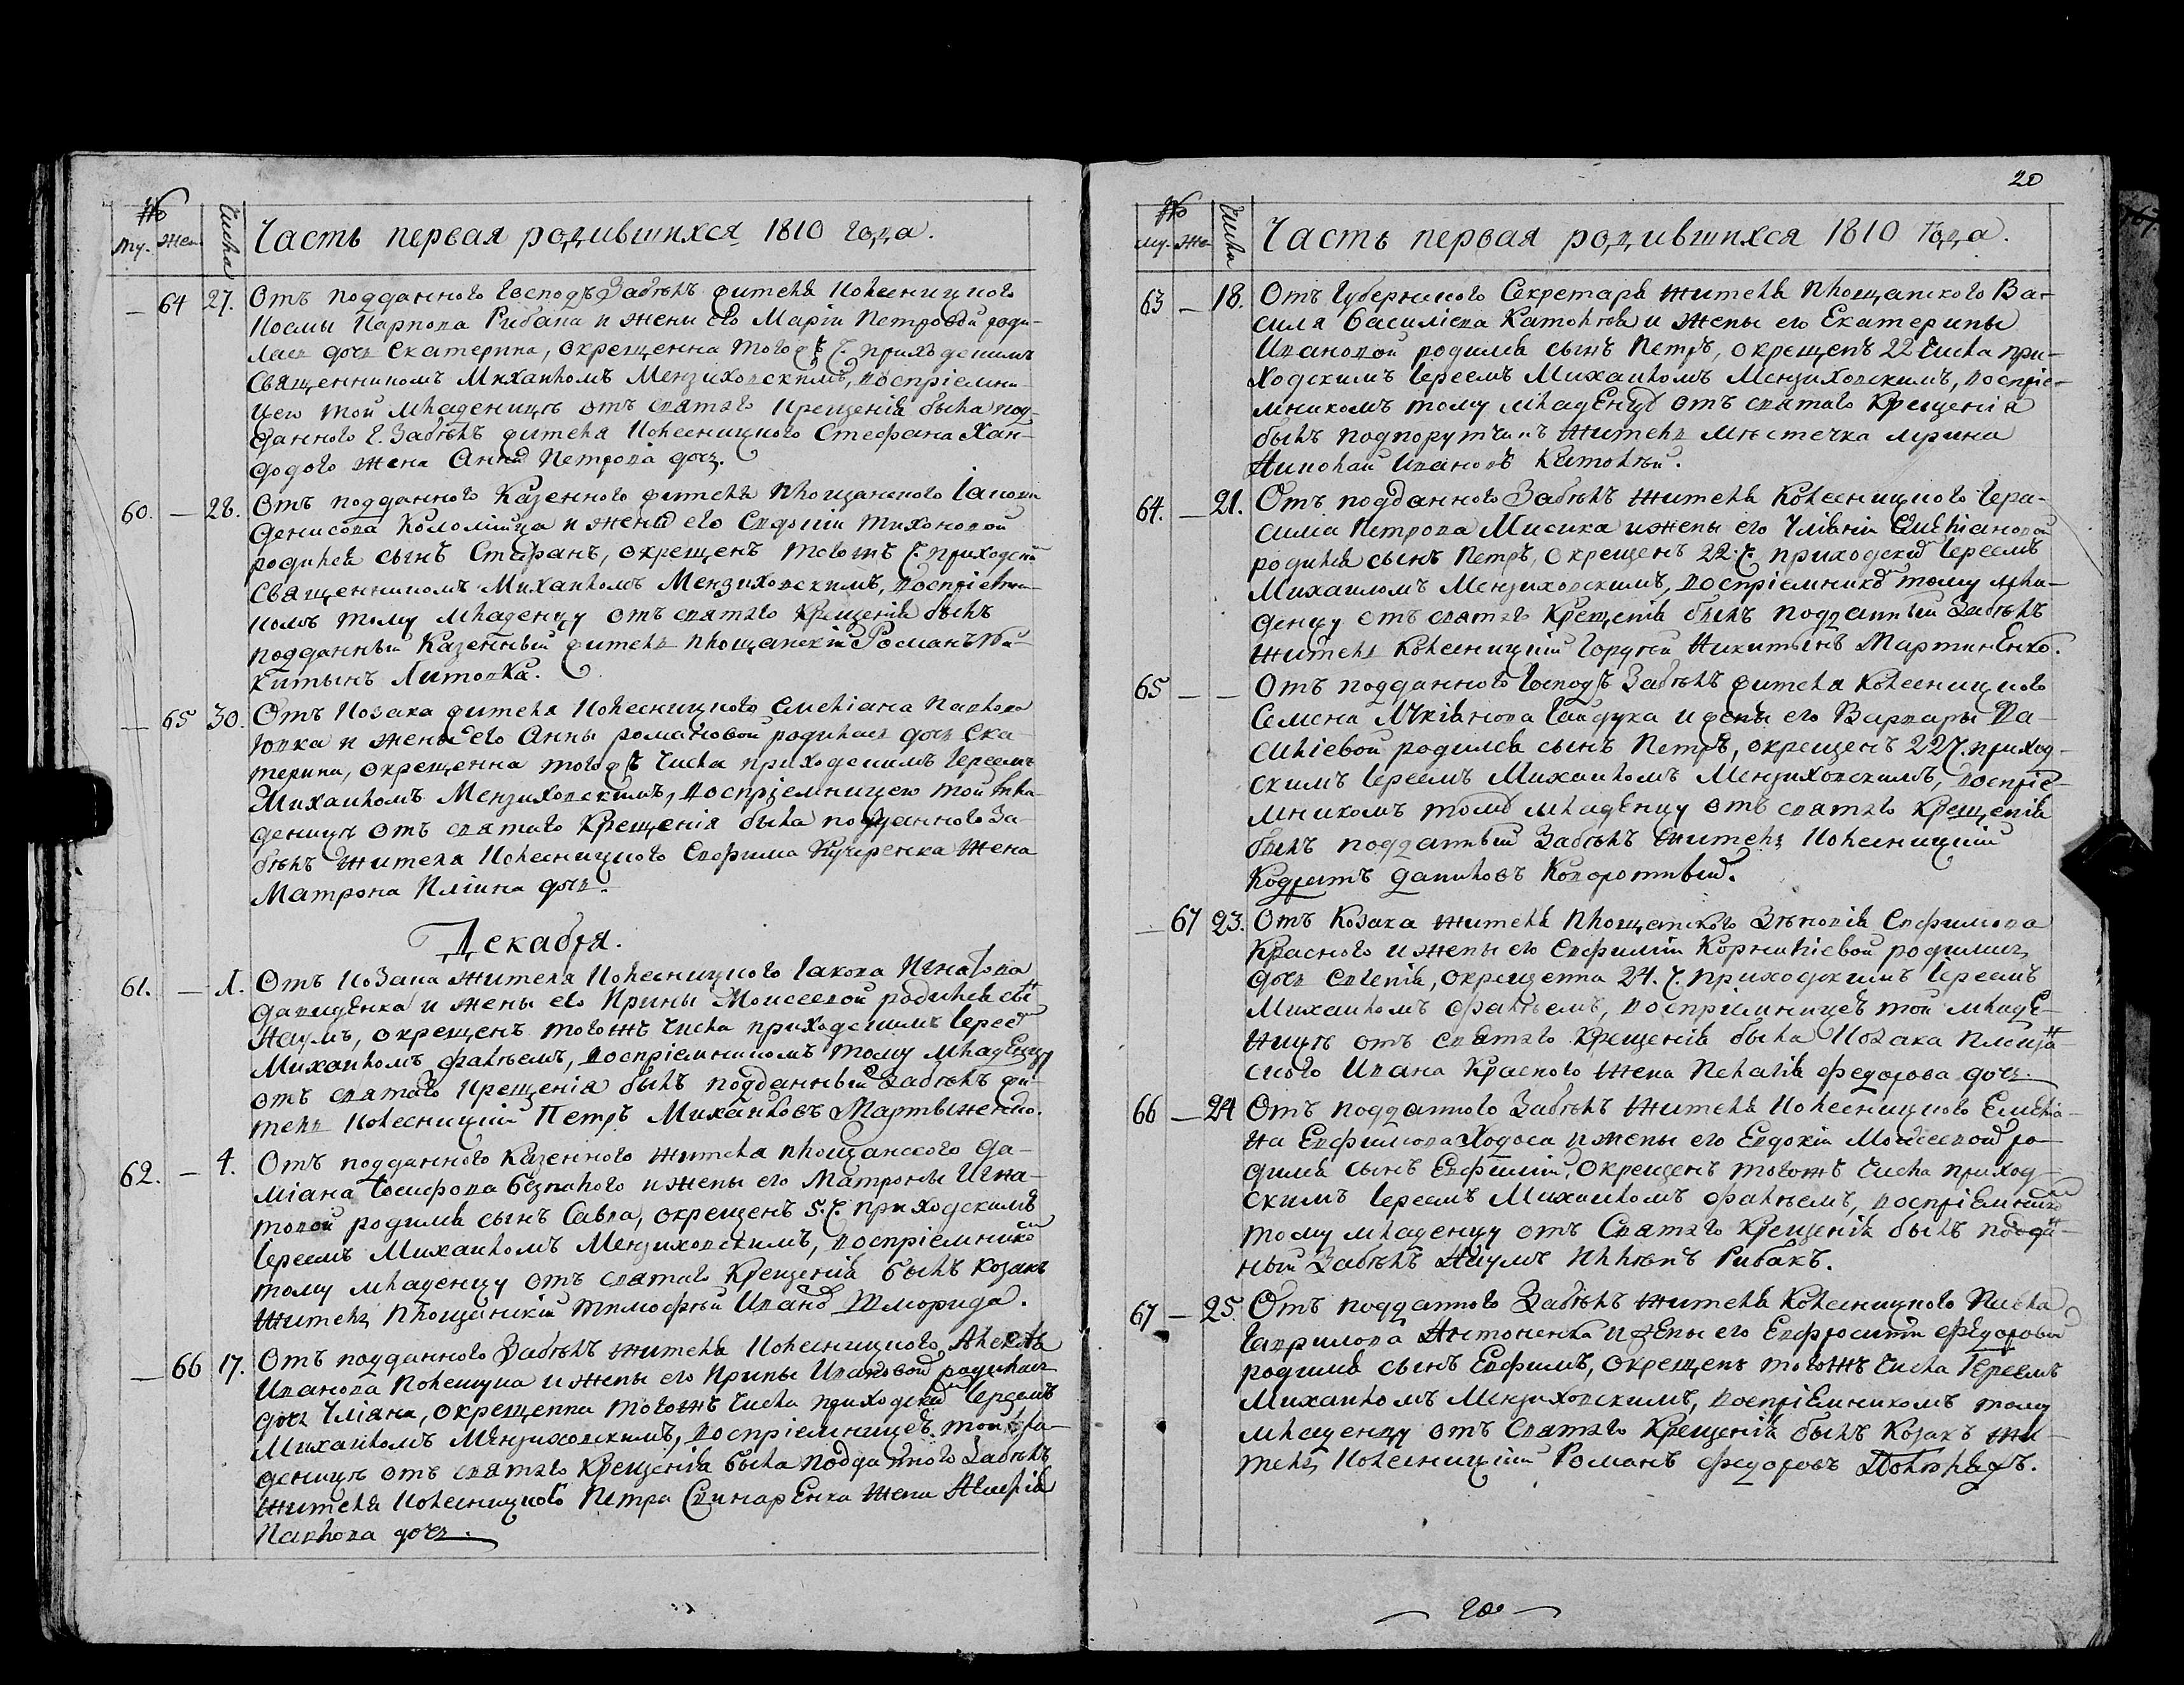 №
му. Жен. Числа Часть первая родившихся 1810 года.
— 64 27. Отъ подданного Господъ Забѣлъ жителя Колесницкого
Космы Карпова Рибака и жены его Маріи Петровой роди-
лась дочь Екатерина, окрещенна того жъ Ч. приходскимъ
Священникомъ Михаиломъ Мензиховскимъ, воспріемни-
цею той младеницѣ отъ святаго крещенія была под-
данного Г. Забѣлъ жителя Колесницкого Стефана Хан-
дого жена Анна Петрова дочь.
60. — 28. Отъ подданного Казенного жителя Площанского Іакова
Денисова Коломійца и жены его Евдокіи Тихоновой
родился сынъ Стефанъ, окрещенъ того жъ Ч. приходскимъ
Священникомъ Михаиломъ Мензиховскимъ, воспріемни-
комъ тому младенцу отъ святаго Крещенія былъ
подданный Казенный житель Площанскій Романъ Ни-
китынъ Литовка.
— 65 30. Отъ Козака жителя Колесницкого Емеліана Павлова
Вовка и жены его Анны Романовой родилась дочь Ека-
терина, окрещенна того жъ Числа приходскимъ Іереемъ
Михаиломъ Мензиховскимъ, воспріемницею той мла-
деницѣ отъ святаго Крещенія была подданного За-
бѣлъ жителя Колесницкого Евфима Кучеренка жена
Матрона Иліина дочь.
Декабря.
61. — 1. Отъ Козака жителя Колесницкого Іакова Игнатова
Давиденка и жены его Ирины Моисеевой родился сынъ
Наумъ, окрещенъ того жъ Числа приходскимъ Іереемъ
Михаиломъ Фалѣемъ, воспріемникомъ тому младенцу
отъ святаго Крещенія былъ подданный Забѣлъ жи-
тель Колесницкій Петръ Михайловъ Мартыненко.
62. — 4. Отъ подданного Казенного жителя Площанского Да-
міана Іосифова Безпалого и жены его Матроны Игна-
товой родился сынъ Савва, окрещенъ 5. Ч. приходскимъ
Іереемъ Михаиломъ Мензиховскимъ, воспріемникомъ
тому младенцу отъ святаго Крещенія былъ Козакъ
житель Площанскій Тимофѣй Ивановъ Шморида.
— 66 17. Отъ подданного Забѣлъ жителя Колесницкого Алексѣя
Иванова Колещука и жены его Ирины Ивановой родилась
дочь Уліяна, окрещенна того жъ Числа приходскимъ Іереемъ
Михаиломъ Мензиховскимъ, воспріемницею той мла-
деницѣ отъ святаго Крещенія была подданного Забѣлъ
жителя Колесницкого Петра Свинаренка жена
Павлова дочь.
20
№
му. Же. Числа Часть первая родившихся 1810 года.
63 — 18. Отъ Губернского Секретаря жителя Площанского Ва-
силя Василіева Католѣя и жены его Екатерины
Ивановой родился сынъ Петръ, окрещенъ 22 Числа при-
ходскимъ Іереемъ Михаиломъ Мензиховскимъ, воспріе-
мникомъ тому младенцу отъ святаго Крещенія
былъ подпорутчикъ житель мѣстечка Мрина
Николай Ивановъ Католѣй.
64. — 21. Отъ подданного Забѣлъ жителя Колесницкого Гера-
сима Петрова Мисика и жены его Уліаніи Емеліановой
родился сынъ Петръ, окрещенъ 22. Ч. приходскимъ Іереемъ
Михаиломъ Мензиховскимъ, воспріемникомъ тому мла-
денцу отъ святаго Крещенія былъ подданный Забѣлъ
житель Колесницкій Гордѣй Никитынъ Мартиненко.
65 — — Отъ подданного Господъ Забѣлъ жителя Колесницкого
Семена Лукіанова Гайдука и жены его Варвары Ва-
силіевой родился сынъ Петръ, окрещенъ 22 Ч. приход-
скимъ Іереемъ Михаиломъ Мензиховскимъ, воспріе-
мникомъ тому младенцу отъ святаго Крещенія
былъ подданный Забѣлъ житель Колесницкій
Кодратъ Даниловъ Коворотный.
— 67 23. Отъ Козака жителя Площанского Зѣновія Евфимова
Красного и жены его Евфиміи Корниліевой родилась
дочь Евгенія, окрещенна 24. Ч. приходскимъ Іереемъ
Михаиломъ Фалѣемъ, воспріемницею той младе-
ницѣ отъ святаго Крещенія была Козака Площан-
ского Ивана Красного жена Пелагія Федорова дочь.
66 — 24 Отъ подданного Забѣлъ жителя Колесницкого Емеліа-
на Евфимова Ходоса и жены его Евдокіи Моисеевой ро-
дился сынъ Евфимій, окрещенъ того жъ Числа приход-
скимъ Іереемъ Михаиломъ Фалѣемъ, воспріемникомъ
тому младенцу отъ Святаго Крещенія былъ поддан-
ный Забѣлъ Наумъ Рибакъ.
67 — 25. Отъ подданного Забѣлъ жителя Колесницкого Павла
Гаврилова Антоненка и жены его Евфросиніи Федоровой
родился сынъ Евфимъ, окрещенъ того жъ Числа Іереемъ
Михаиломъ Мензиховскимъ, воспріемникомъ тому
младенцу отъ Святаго Крещенія былъ Козакъ жи-
тель Колесницкій Романъ Федоровъ
20